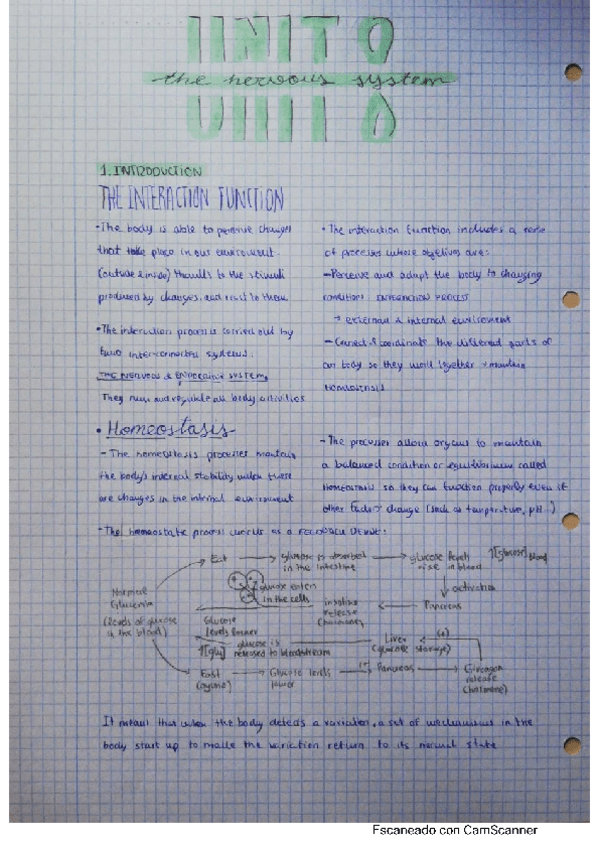 UNIT 0
the nervous system
UNIT 0
1. INTRODUCTION
THE INTERACTION FUNCTION
•The body is able to perceive changes
that take place in our environment.
(outside & inside) to the stimuli
produced by changes, and react to them.
•The interaction process is carried out by
two interconnected systems:
THE NERVOUS & ENDOCRINE SYSTEMS
They run and regulate all body activities
•The interaction function includes a serie
of processes whose objetives are:
—Perceive and adapt the body to changing
conditions INTERACTION PROCESS
→ external & internal environment
—Connect & coordinate the different parts of
an body so they work together & maintain
HOMEOSTASIS
• Homeostasis
- The homeostasis processes maintain
the body's internal stability when there
are changes in the internal environment
- The processes allow organs to maintain
a balanced condition or equilibrium called
HOMEOSTASIS so they can function properly even if
other factors change (such as temperature, pH...)
- The homeostatic process works as a FEEDBACK
Normal
Glucemia
(levels of glucose
in the blood)
Eat → glucose is absorbed
in the intestine
→ glucose levels
rise in blood
↑[glucose] blood
activation
Pancreas
insuline
release
(hormone)
glucose enters
in the cells
Glucose
levels lower
Fast
→ Glucose levels
lower
(+) Pancreas
→ Glucagon
release
(hormone)
(+)
Liver
(glucose storage)
glucose is
released to bloodstream
It means that when the body detects a variation, a set of mechanisms in the
body start up to make the variation return to its normal state
Escaneado con CamScanner